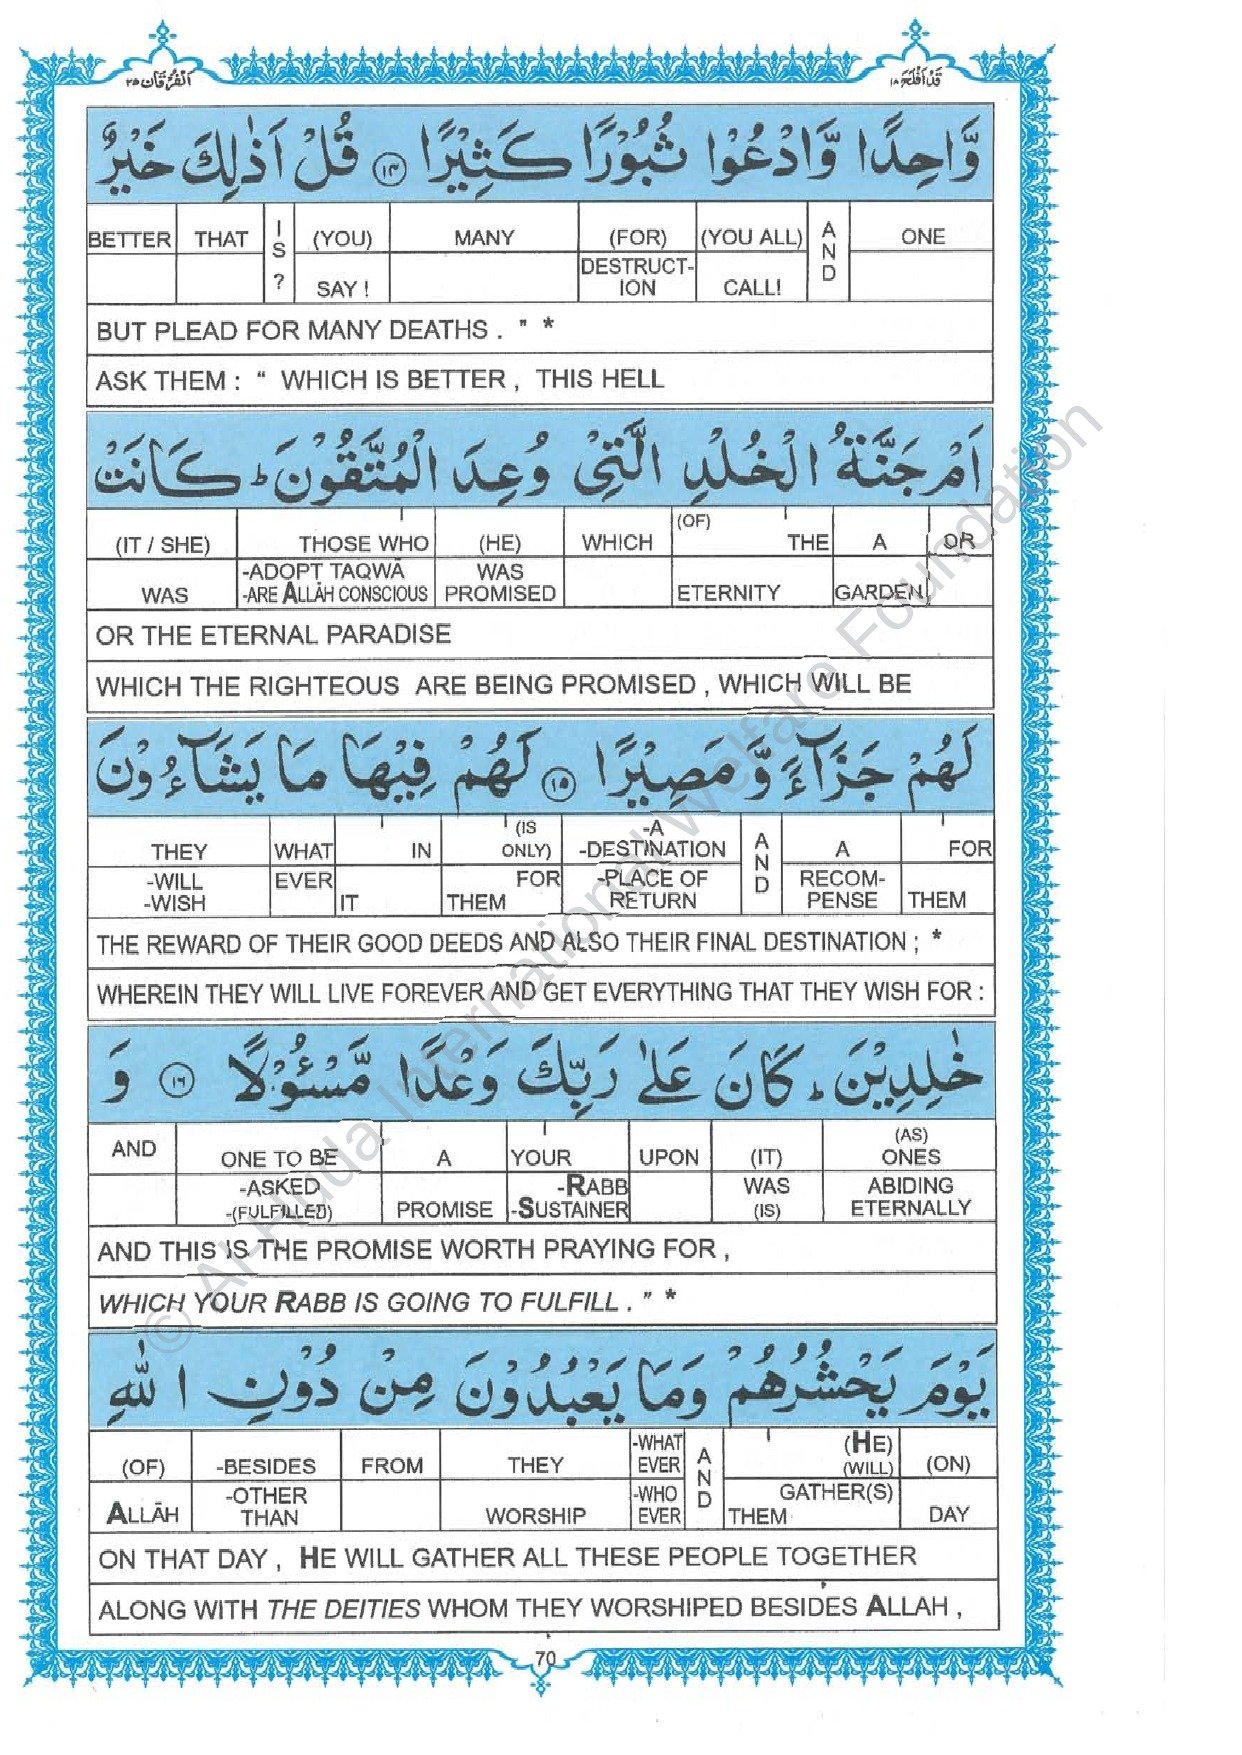 قَدْ اَفْلَحَ ١٨
اَلْفُرْقَان ٢٥
وَّاحِدًا وَّادْعُوْا ثُبُوْرًا كَثِيْرًا ١٤ قُلْ اَذٰلِكَ خَيْرٌ
BETTER THAT IS? (YOU) MANY (FOR) (YOU ALL) AND ONE
SAY ! DESTRUCT-ION CALL!
BUT PLEAD FOR MANY DEATHS . ” *
ASK THEM : “ WHICH IS BETTER , THIS HELL
اَمْ جَنَّةُ الْخُلْدِ الَّتِيْ وُعِدَ الْمُتَّقُوْنَ ؕ كَانَتْ
(IT / SHE) THOSE WHO (HE) WHICH (OF) THE A OR
WAS -ADOPT TAQWĀ -ARE ALLĀH CONSCIOUS WAS PROMISED ETERNITY GARDEN
OR THE ETERNAL PARADISE
WHICH THE RIGHTEOUS ARE BEING PROMISED , WHICH WILL BE
لَهُمْ جَزَآءً وَّ مَصِيْرًا ١٥ لَهُمْ فِيْهَا مَا يَشَآءُوْنَ
THEY WHAT IN (IS ONLY) -A -DESTINATION AND A FOR
-WILL -WISH EVER IT FOR THEM -PLACE OF RETURN RECOM-PENSE THEM
THE REWARD OF THEIR GOOD DEEDS AND ALSO THEIR FINAL DESTINATION ; *
WHEREIN THEY WILL LIVE FOREVER AND GET EVERYTHING THAT THEY WISH FOR :
خٰلِدِيْنَ ؕ كَانَ عَلٰى رَبِّكَ وَعْدًا مَّسْـُٔوْلًا ١٦ وَ
AND ONE TO BE A YOUR UPON (IT) (AS) ONES
-ASKED -(FULFILLED) PROMISE -RABB -SUSTAINER WAS (IS) ABIDING ETERNALLY
AND THIS IS THE PROMISE WORTH PRAYING FOR ,
WHICH YOUR RABB IS GOING TO FULFILL . ” *
يَوْمَ يَحْشُرُهُمْ وَمَا يَعْبُدُوْنَ مِنْ دُوْنِ اللّٰهِ
(OF) -BESIDES FROM THEY -WHAT EVER AND (HE) (WILL) (ON)
ALLĀH -OTHER THAN WORSHIP -WHO EVER GATHER(S) THEM DAY
ON THAT DAY , HE WILL GATHER ALL THESE PEOPLE TOGETHER
ALONG WITH THE DEITIES WHOM THEY WORSHIPED BESIDES ALLAH ,
70
© Al-Huda International Welfare Foundation